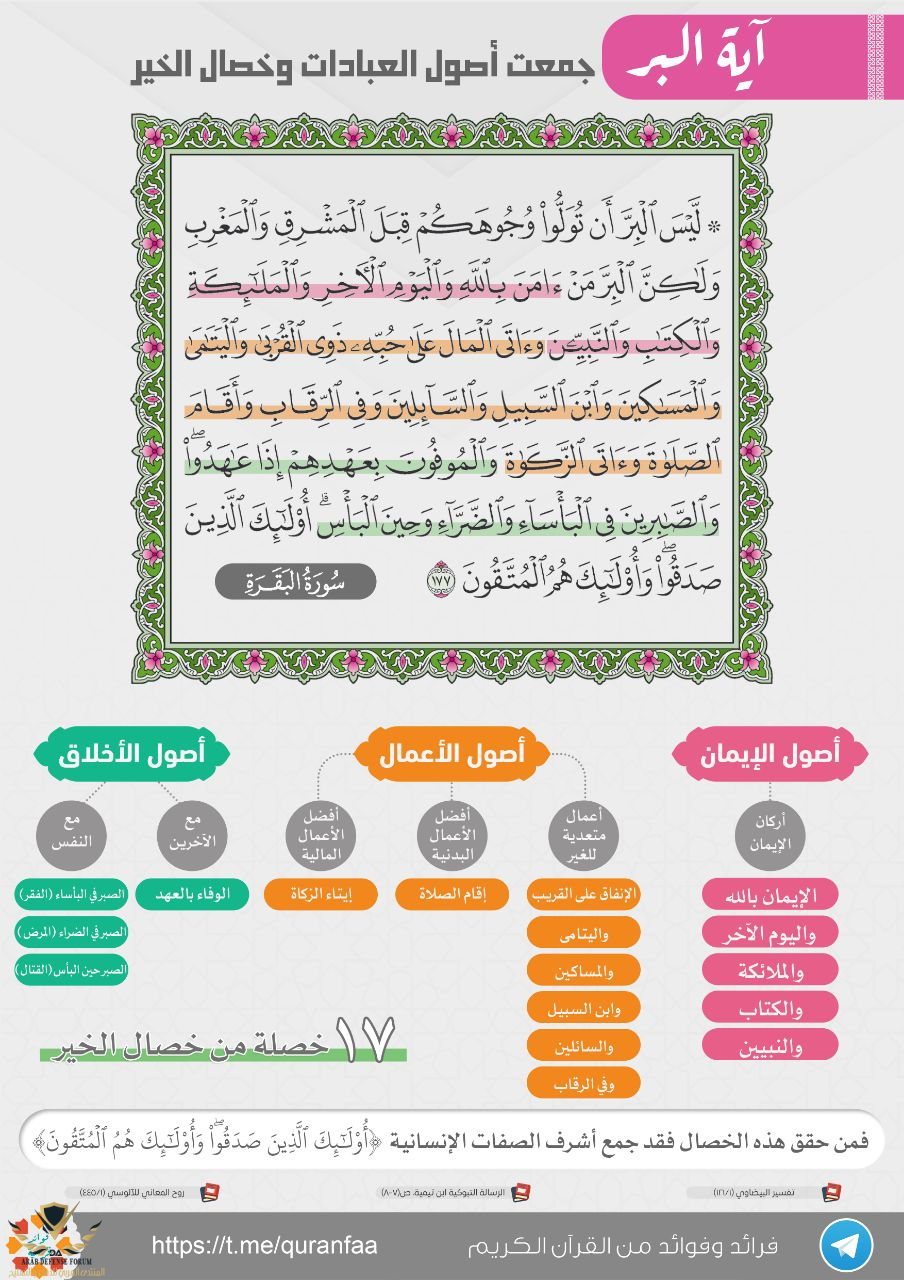 آية البر
جمعت أصول العبادات وخصال الخير
۞ لَّيۡسَ ٱلۡبِرَّ أَن تُوَلُّواْ وُجُوهَكُمۡ قِبَلَ ٱلۡمَشۡرِقِ وَٱلۡمَغۡرِبِ
وَلَٰكِنَّ ٱلۡبِرَّ مَنۡ ءَامَنَ بِٱللَّهِ وَٱلۡيَوۡمِ ٱلۡأٓخِرِ وَٱلۡمَلَٰٓئِكَةِ
وَٱلۡكِتَٰبِ وَٱلنَّبِيِّـۧنَ وَءَاتَى ٱلۡمَالَ عَلَىٰ حُبِّهِۦ ذَوِي ٱلۡقُرۡبَىٰ وَٱلۡيَتَٰمَىٰ
وَٱلۡمَسَٰكِينَ وَٱبۡنَ ٱلسَّبِيلِ وَٱلسَّآئِلِينَ وَفِي ٱلرِّقَابِ وَأَقَامَ
ٱلصَّلَوٰةَ وَءَاتَى ٱلزَّكَوٰةَ وَٱلۡمُوفُونَ بِعَهۡدِهِمۡ إِذَا عَٰهَدُواْۖ
وَٱلصَّٰبِرِينَ فِي ٱلۡبَأۡسَآءِ وَٱلضَّرَّآءِ وَحِينَ ٱلۡبَأۡسِۗ أُوْلَٰٓئِكَ ٱلَّذِينَ
صَدَقُواْۖ وَأُوْلَٰٓئِكَ هُمُ ٱلۡمُتَّقُونَ ١٧٧
سُورَةُ البَقَرَةِ
أصول الإيمان
أركان
الإيمان
الإيمان بالله
واليوم الآخر
والملائكة
والكتاب
والنبيين
أصول الأعمال
أعمال
متعدية
للغير
الإنفاق على القريب
واليتامى
والمساكين
وابن السبيل
والسائلين
وفي الرقاب
أفضل
الأعمال
البدنية
إقام الصلاة
أفضل
الأعمال
المالية
إيتاء الزكاة
أصول الأخلاق
مع
الآخرين
الوفاء بالعهد
مع
النفس
الصبر في البأساء (الفقر)
الصبر في الضراء (المرض)
الصبر حين البأس (القتال)
١٧ خصلة من خصال الخير
فمن حقق هذه الخصال فقد جمع أشرف الصفات الإنسانية ﴿أُوْلَٰٓئِكَ ٱلَّذِينَ صَدَقُواْۖ وَأُوْلَٰٓئِكَ هُمُ ٱلۡمُتَّقُونَ﴾
تفسير البيضاوي (١٢١/١)
الرسالة التبوكية ابن تيمية، ص(٧-٨)
روح المعاني للآلوسي (٤٤٥/١)
فرائد وفوائد من القرآن الكريم
https://t.me/quranfaa
ARAB DEFENSE FORUM